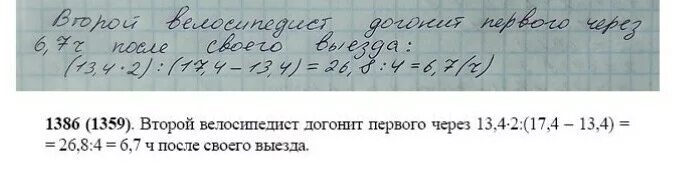 Второй велосипедист догонит первого через
6,7ч после своего выезда:
(13,4·2) : (17,4 – 13,4) = 26,8 : 4 = 6,7 (ч)
1386 (1359). Второй велосипедист догонит первого через 13,4·2:(17,4 – 13,4) =
= 26,8:4 = 6,7 ч после своего выезда.